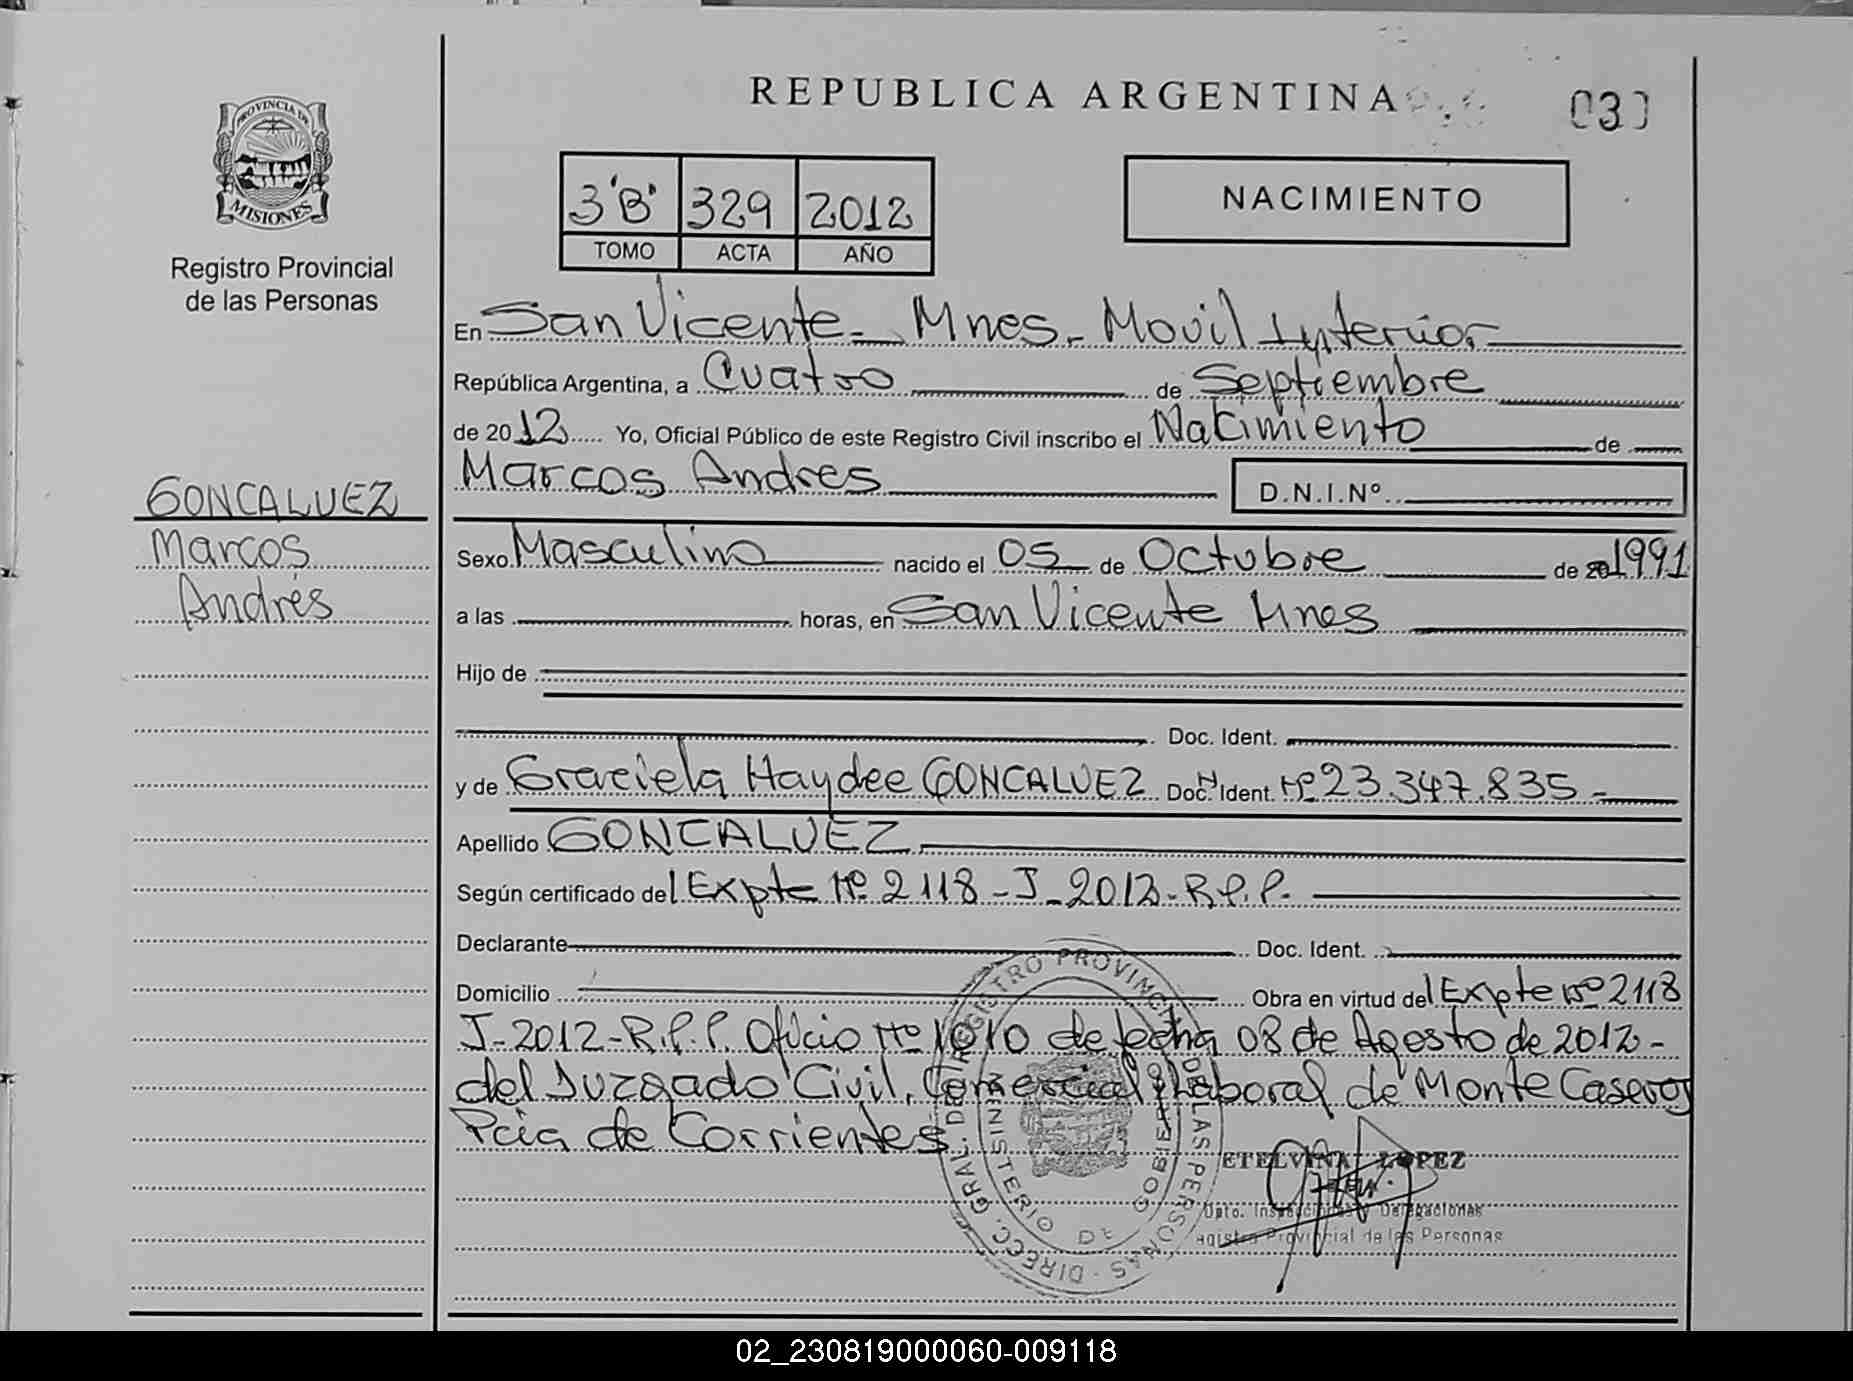 REPUBLICA ARGENTINA
030
PROVINCIA DE
MISIONES
Registro Provincial
de las Personas
3 "B" 329 2012
TOMO ACTA AÑO
NACIMIENTO
En San Vicente - Mnes. - Movil Interior
República Argentina, a Cuatro de Septiembre
de 2012 Yo, Oficial Público de este Registro Civil inscribo el Nacimiento de
Marcos Andres D.N.I.Nº
GONCALVEZ
Marcos
Andrés
Sexo Masculino nacido el 05 de Octubre de 20 1991
a las horas, en San Vicente Mnes
Hijo de
Doc. Ident.
y de Graciela Haydee GONCALVEZ Doc. Ident. Nº 23.347.835 -
Apellido GONCALVEZ
Según certificado del Expte Nº 2118 - J - 2012 - R.P.P.
Declarante Doc. Ident.
Domicilio Obra en virtud del Expte Nº 2118
J - 2012 - R.P.P. Oficio Nº 1010 de fecha 08 de Agosto de 2012 -
del Juzgado Civil, Comercial y Laboral de Monte Caseros
Pcia de Corrientes
DIRECC. GRAL. DE REGISTRO PROVINCIAL DE LAS PERSONAS
MINISTERIO DE GOBIERNO
ETELVINA LOPEZ
Dpto. Inspecciones y Delegaciones
Registro Provincial de las Personas
02_230819000060-009118